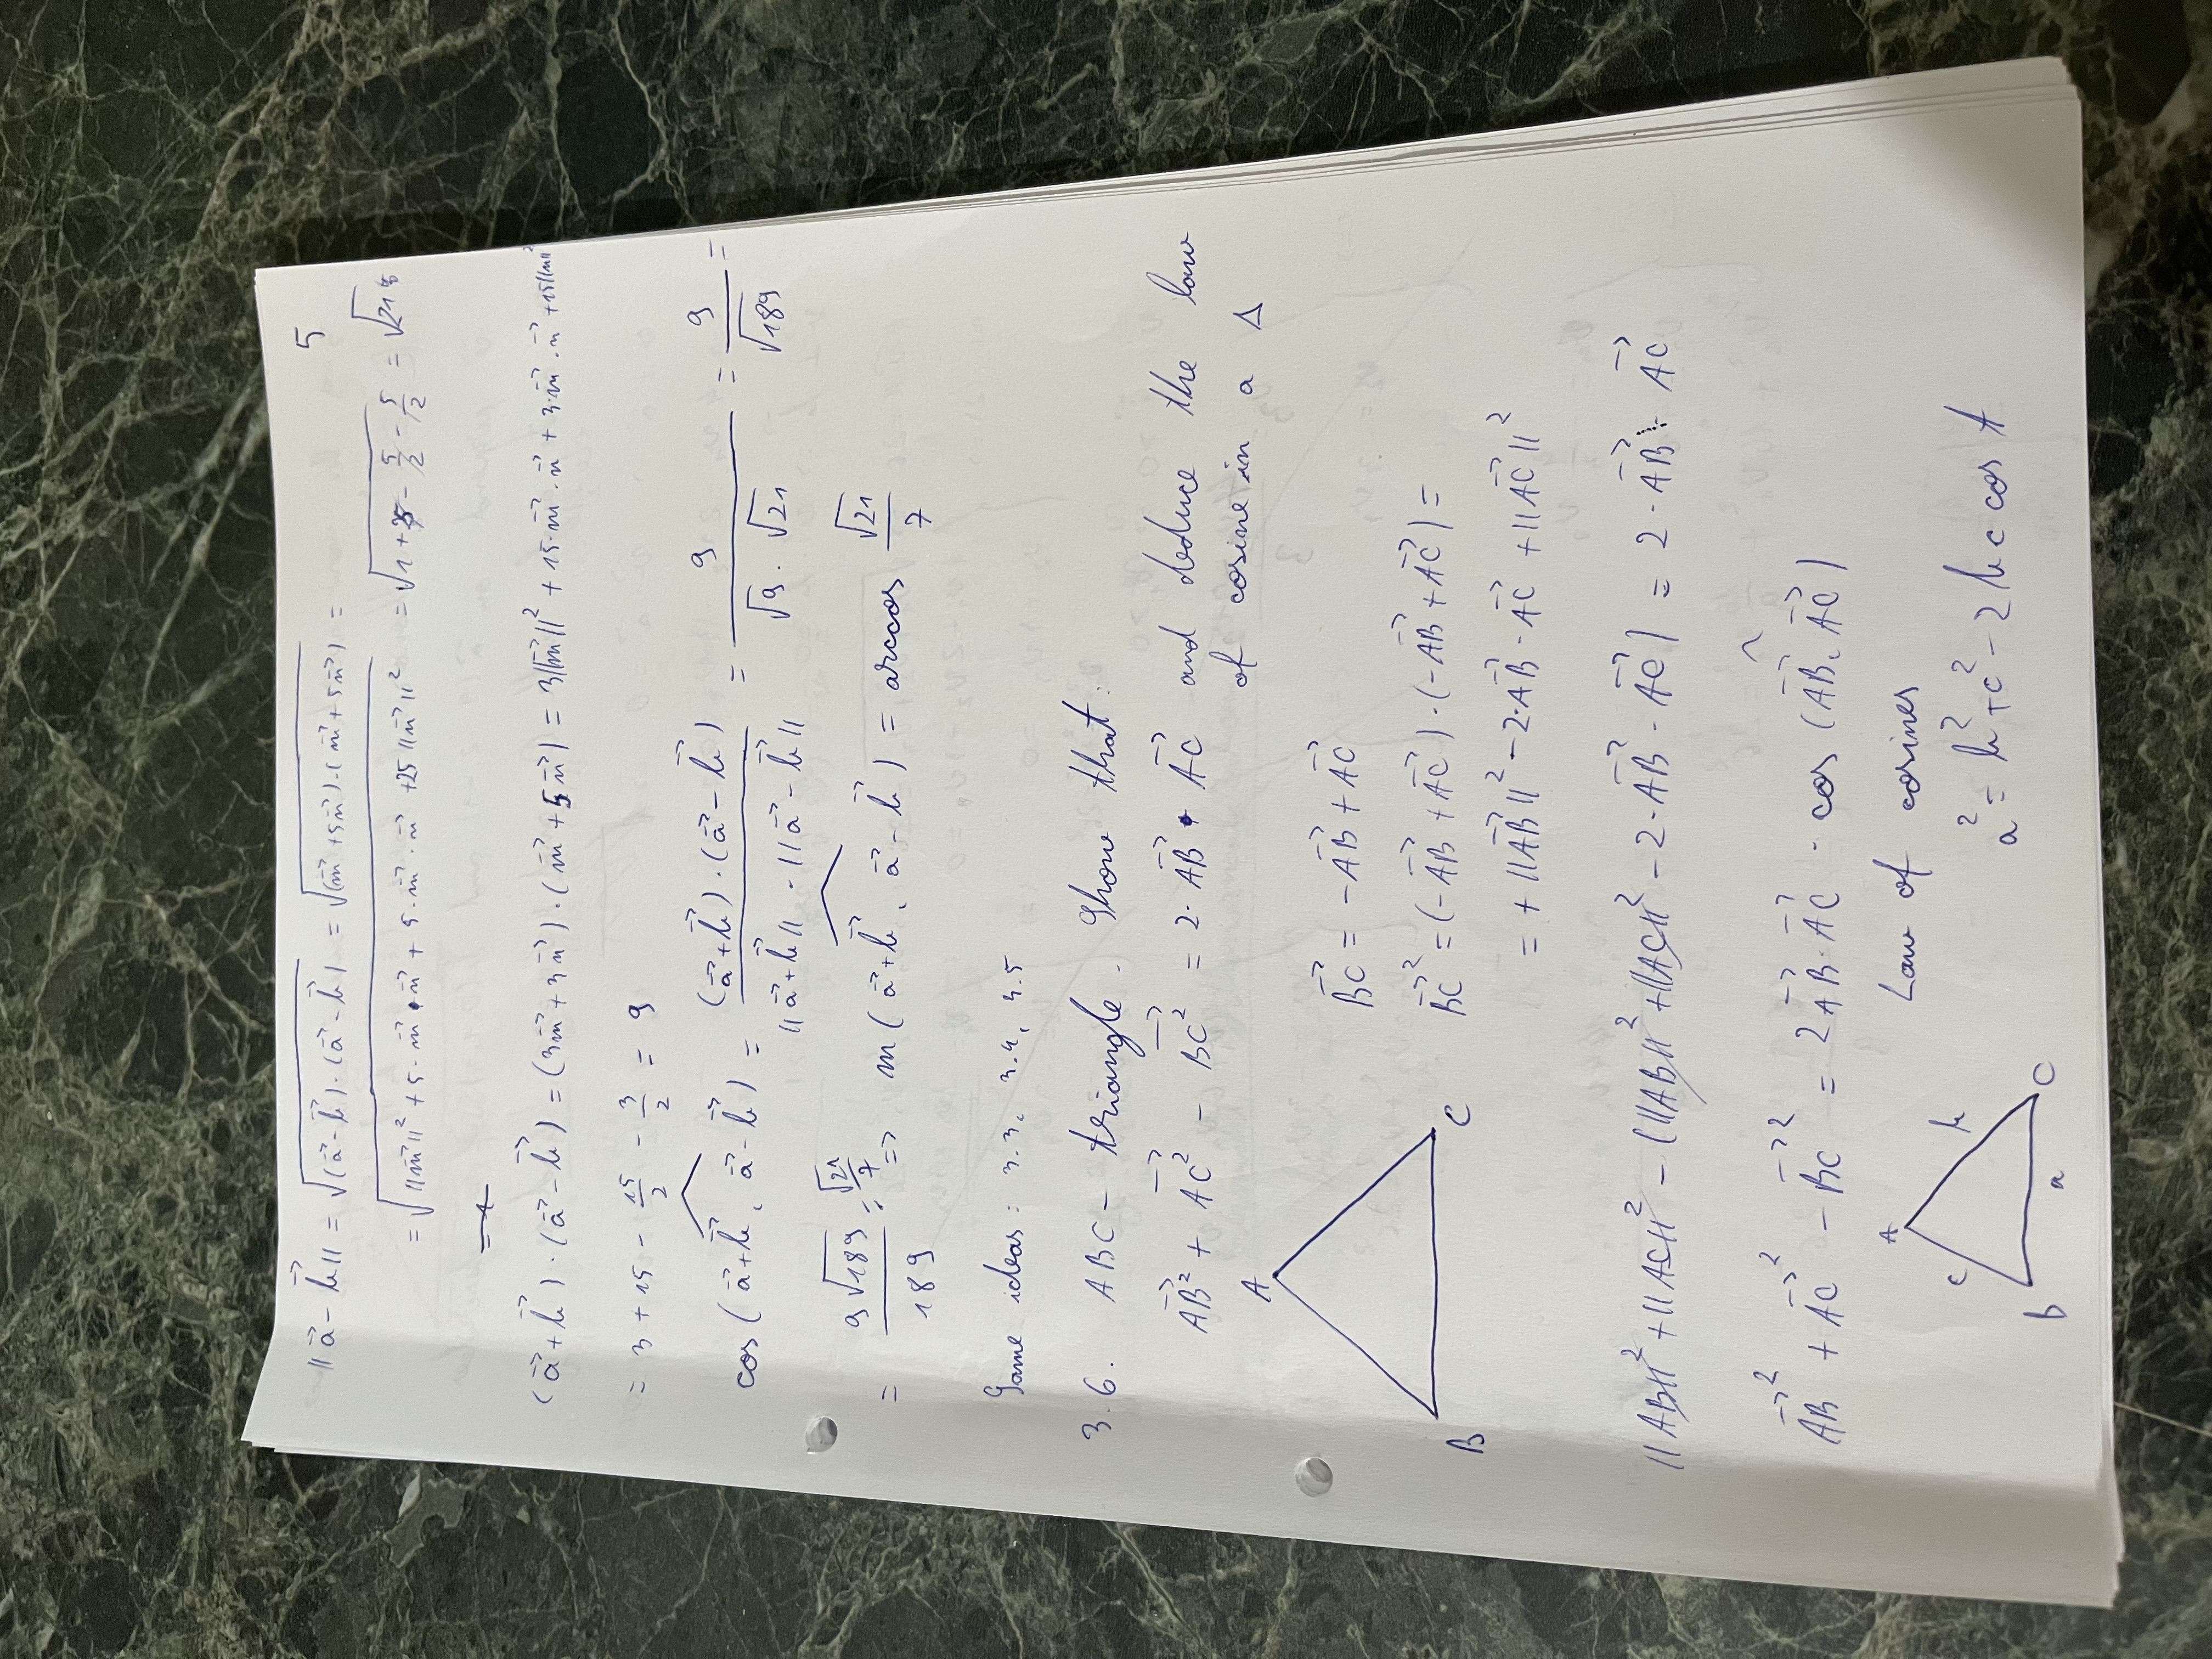 5
||a⃗ - b⃗|| = √((a⃗-b⃗)·(a⃗-b⃗)) = √((m⃗+5n⃗)·(m⃗+5n⃗)) =
= √(||m⃗||² + 5·m⃗·n⃗ + 5·m⃗·n⃗ + 25||n⃗||²) = √(1+25 - 5/2 - 5/2) = √21
(a⃗+b⃗)·(a⃗-b⃗) = (3m⃗+3n⃗)·(m⃗+5n⃗) = 3||m⃗||² + 15·m⃗·n⃗ + 3·m⃗·n⃗ + 15||n||²
= 3 + 15 - 15/2 - 3/2 = 9
cos(a⃗+b⃗, a⃗-b⃗) = (a⃗+b⃗)·(a⃗-b⃗) / ||a⃗+b⃗||·||a⃗-b⃗|| = 9 / √9·√21 = 9/√189 =
= 9√189/189 = √21/7 => m(a⃗+b⃗, a⃗-b⃗) = arccos √21/7
Same ideas: 3.3, 3.4, 3.5
3.6. ABC - triangle. Show that:
AB⃗² + AC⃗² - BC⃗² = 2·AB⃗·AC⃗ and deduce the law
of cosine in a Δ
A
B C
BC⃗ = -AB⃗ + AC⃗
BC⃗² = (-AB⃗ + AC⃗)·(-AB⃗ + AC⃗) =
= + ||AB⃗||² - 2·AB⃗·AC⃗ + ||AC⃗||²
||AB||² + ||AC||² - (||AB||² + ||AC||² - 2·AB⃗·AC⃗) = 2·AB⃗·AC⃗
AB⃗² + AC⃗² - BC⃗² = 2AB⃗·AC⃗·cos(AB⃗, AC⃗)
Law of cosines
A
c b
B a C
a² = b² + c² - 2bc cos A